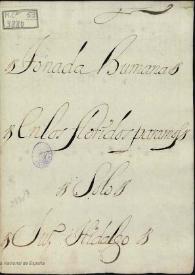 Tonada Humana
En los floridos paramos
Solo
Ju.º Hidalgo
Biblioteca Nacional de España